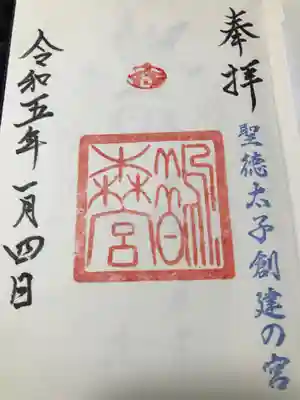 奉拝
聖徳太子創建の宮
鵲森宮
令和五年一月四日